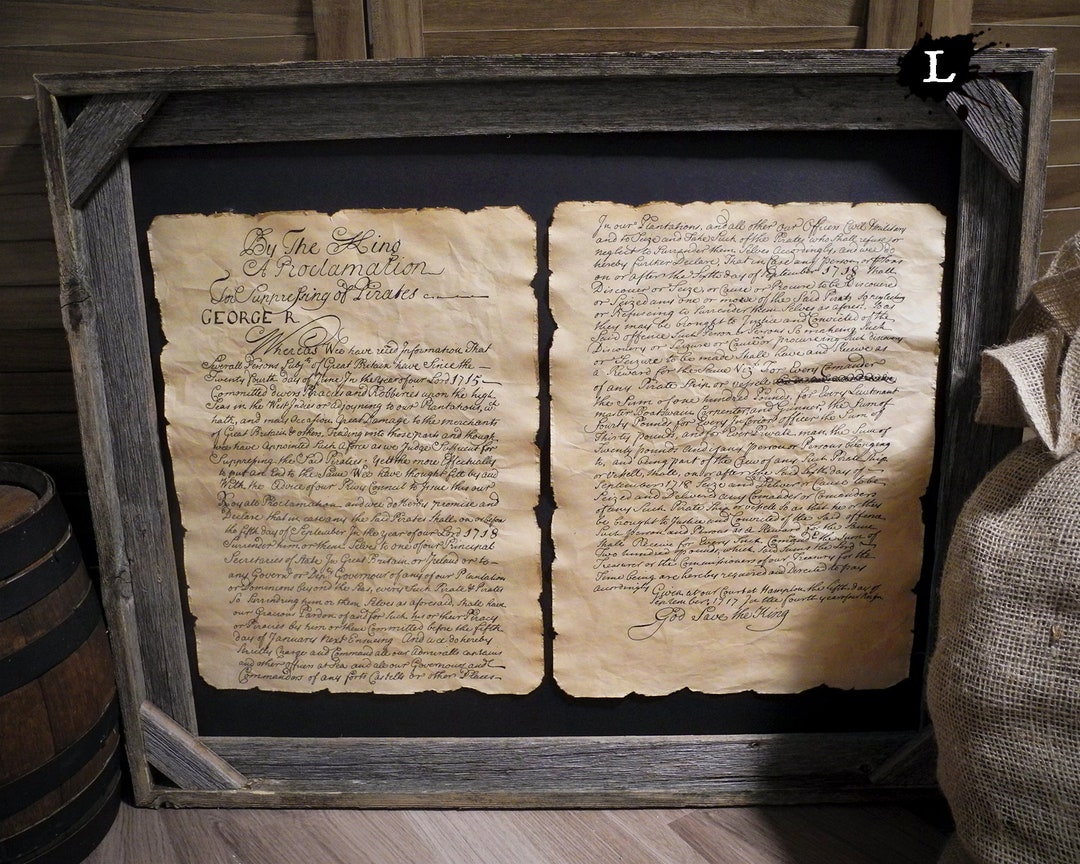 L
By The King
A Proclamation
For Suppressing of Pirates
GEORGE R
Whereas We have recd Information That
Severall Persons Subjts of Great Britain have Since the
Twenty fourth day of June In the year of our Lord 1715
Committed divers Piracies and Robberies upon the high
Seas in the West Indies or adjoyning to our Plantations, wch
hath, and may Occasion Great Damage to the merchants
of Great Britain & others, Trading unto those parts and though
we have Appointed Such a force as we Judge Sufficient for
Suppressing the Said Pirates: Yet the more Effectually
to put an End to the Same We have thought fitt by and
With the Advice of our Privy Council to Issue this our
Royale Proclamation and we do hereby promise and
Declare That in case any the Said Pirates Shall on or before
the fifth day of September In the year of our Lord 1718
Surrender him or them Selves to one of our Principal
Secretaries of State In Great Britain or Ireland or to
any Governr or Depy Governour of any of our Plantations
or Dominions beyond the Sea, every Such Pirate & Pirates
So Surrendring him or them Selves as aforesaid, Shall have
our Gracious Pardon of and for Such his or their Piracy
or Piracies by him or them Committed before the fifth
day of January Next Ensueing And we do hereby
Strictly Charge and Command all our Admiralls Captains
and other officers at Sea and all our Governours and
Commanders of any forts Castells or other Places
In our Plantations, and all other our Officers Civil Military
and to Seize and Take Such of the Pirates who Shall refuse or
neglect to Surrender them Selves Accordingly, and we do
hereby further Declare That in Case any person or persons
on or after the Sixth day of September 1718 Shall
Discover or Seize, or Cause or Procure to be Discovered
or Seized any one or more of the Said Pirats So neglecting
or Refusing to Surrender them Selves as afores. So as
they may be brought to Justice and Convicted of the
Said offence Such Person or Persons So making Such
Discovery or Seizure or Causing or procuring Such discovery
or Seizure to be made Shall have and Receive as
a Reward for the Same Vizt For Every Comander
of any Pirate Ship or vessele
the Sum of one hundred Pounds, for Every Lieutenant
master Boatswain Carpenter and Gunner, the Sum of
fourty Pounds for Every Inferior officer the Sum of
Thirty pounds, and for Every Private man the Sum of
Twenty pounds and if any person or Persons belonging
to, and being part of the Crew of any Such Pirate Ship
or vessele, Shall on or after the Said Sixth day of
September 1718 Seize and Deliver or Cause to be
Seized and Delivered any Comander or Comanders
of any Such Pirate Ship or vessele So as that he or they
be brought to Justice and Convicted of the Said offence
Such Person and Persons as a Reward for the Same
Shall Receive for Every Such Comander the Sum of
Two hundred Pounds, which Said Sums the Lord
Treasurer or the Commissioners of our Treasury for the
Time being are hereby required and Directed to pay
accordingly Given at our Court at Hampton the fifth day of
September, 1717 In the fourth year of our Reign
God Save the King